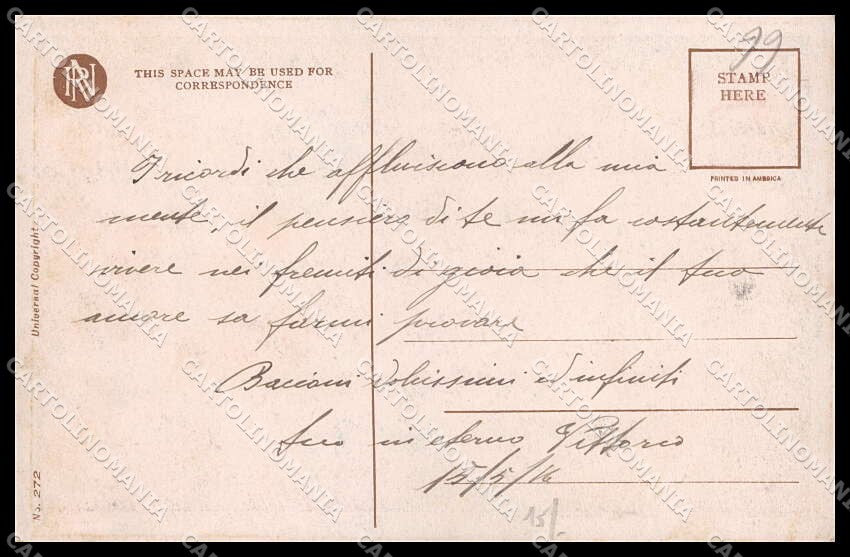 RN
THIS SPACE MAY BE USED FOR
CORRESPONDENCE
99
STAMP
HERE
PRINTED IN AMERICA
I ricordi che affluiscono alla mia
mente, il pensiero di te mi fa costantemente
vivere nei fremiti di gioia che il tuo
amore sa farmi provare
Bacioni dolcissimi ed infiniti
tuo in eterno Vittorio
15/5/16
15/
Universal Copyright
No. 272
CARTOLINOMANIA